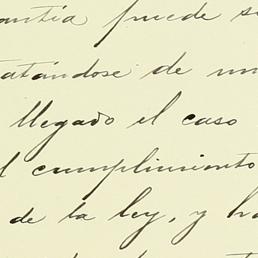 antía puede s
tatándose de un
llegado el caso
l cumplimiento
de la ley, y ha